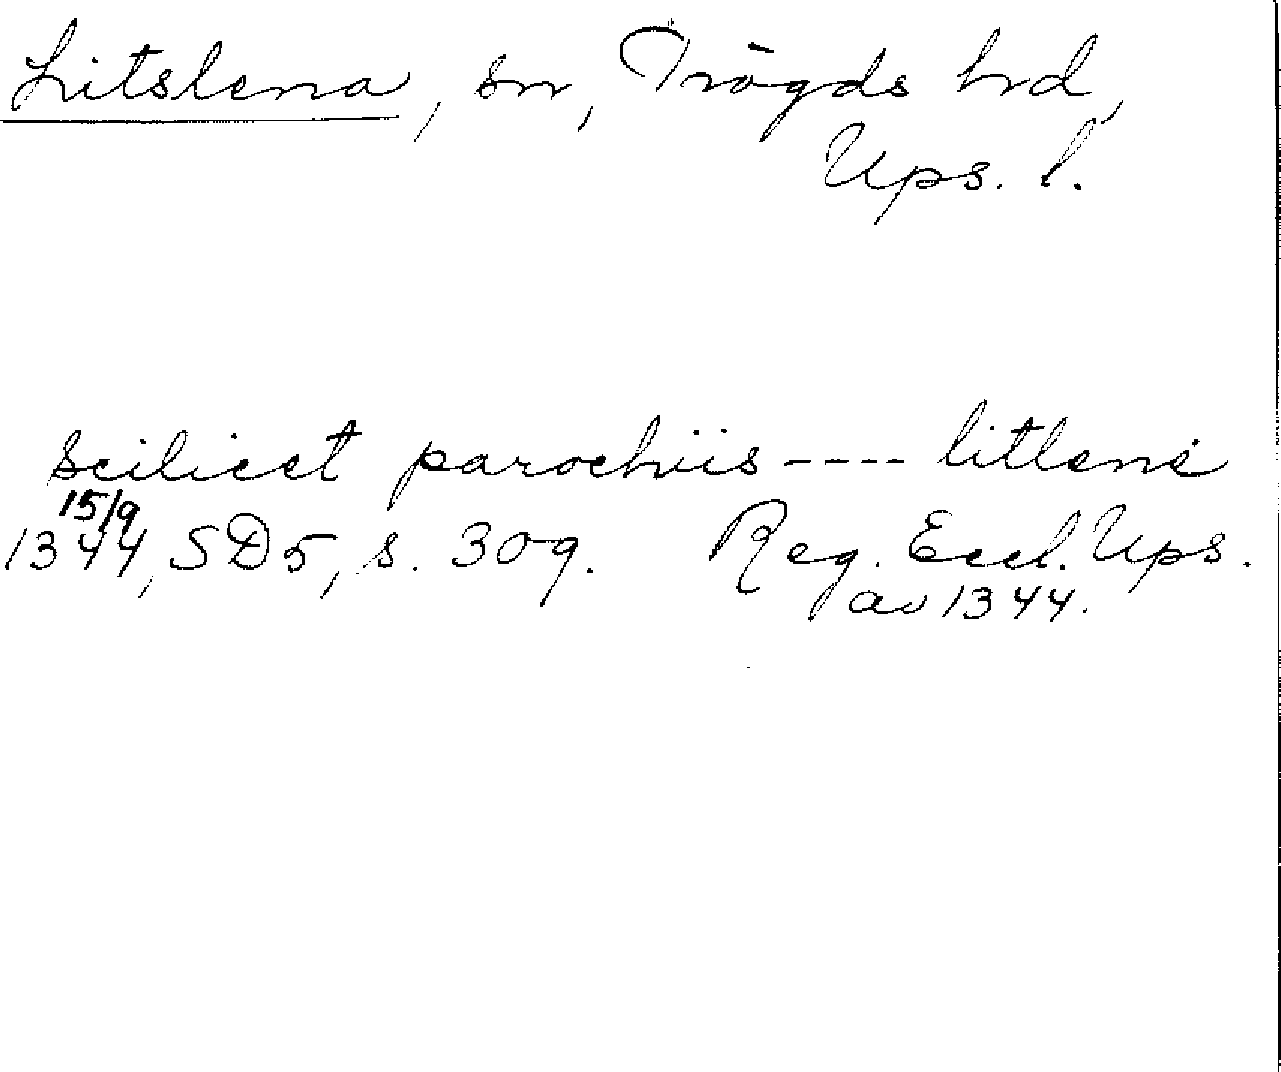 Litslena, sn, Trögds hd,
Ups. l.
scilicet parochiis ---- litlene
15/9
1344, SD5, s. 309. Reg. Eccl. Ups.
av 1344.